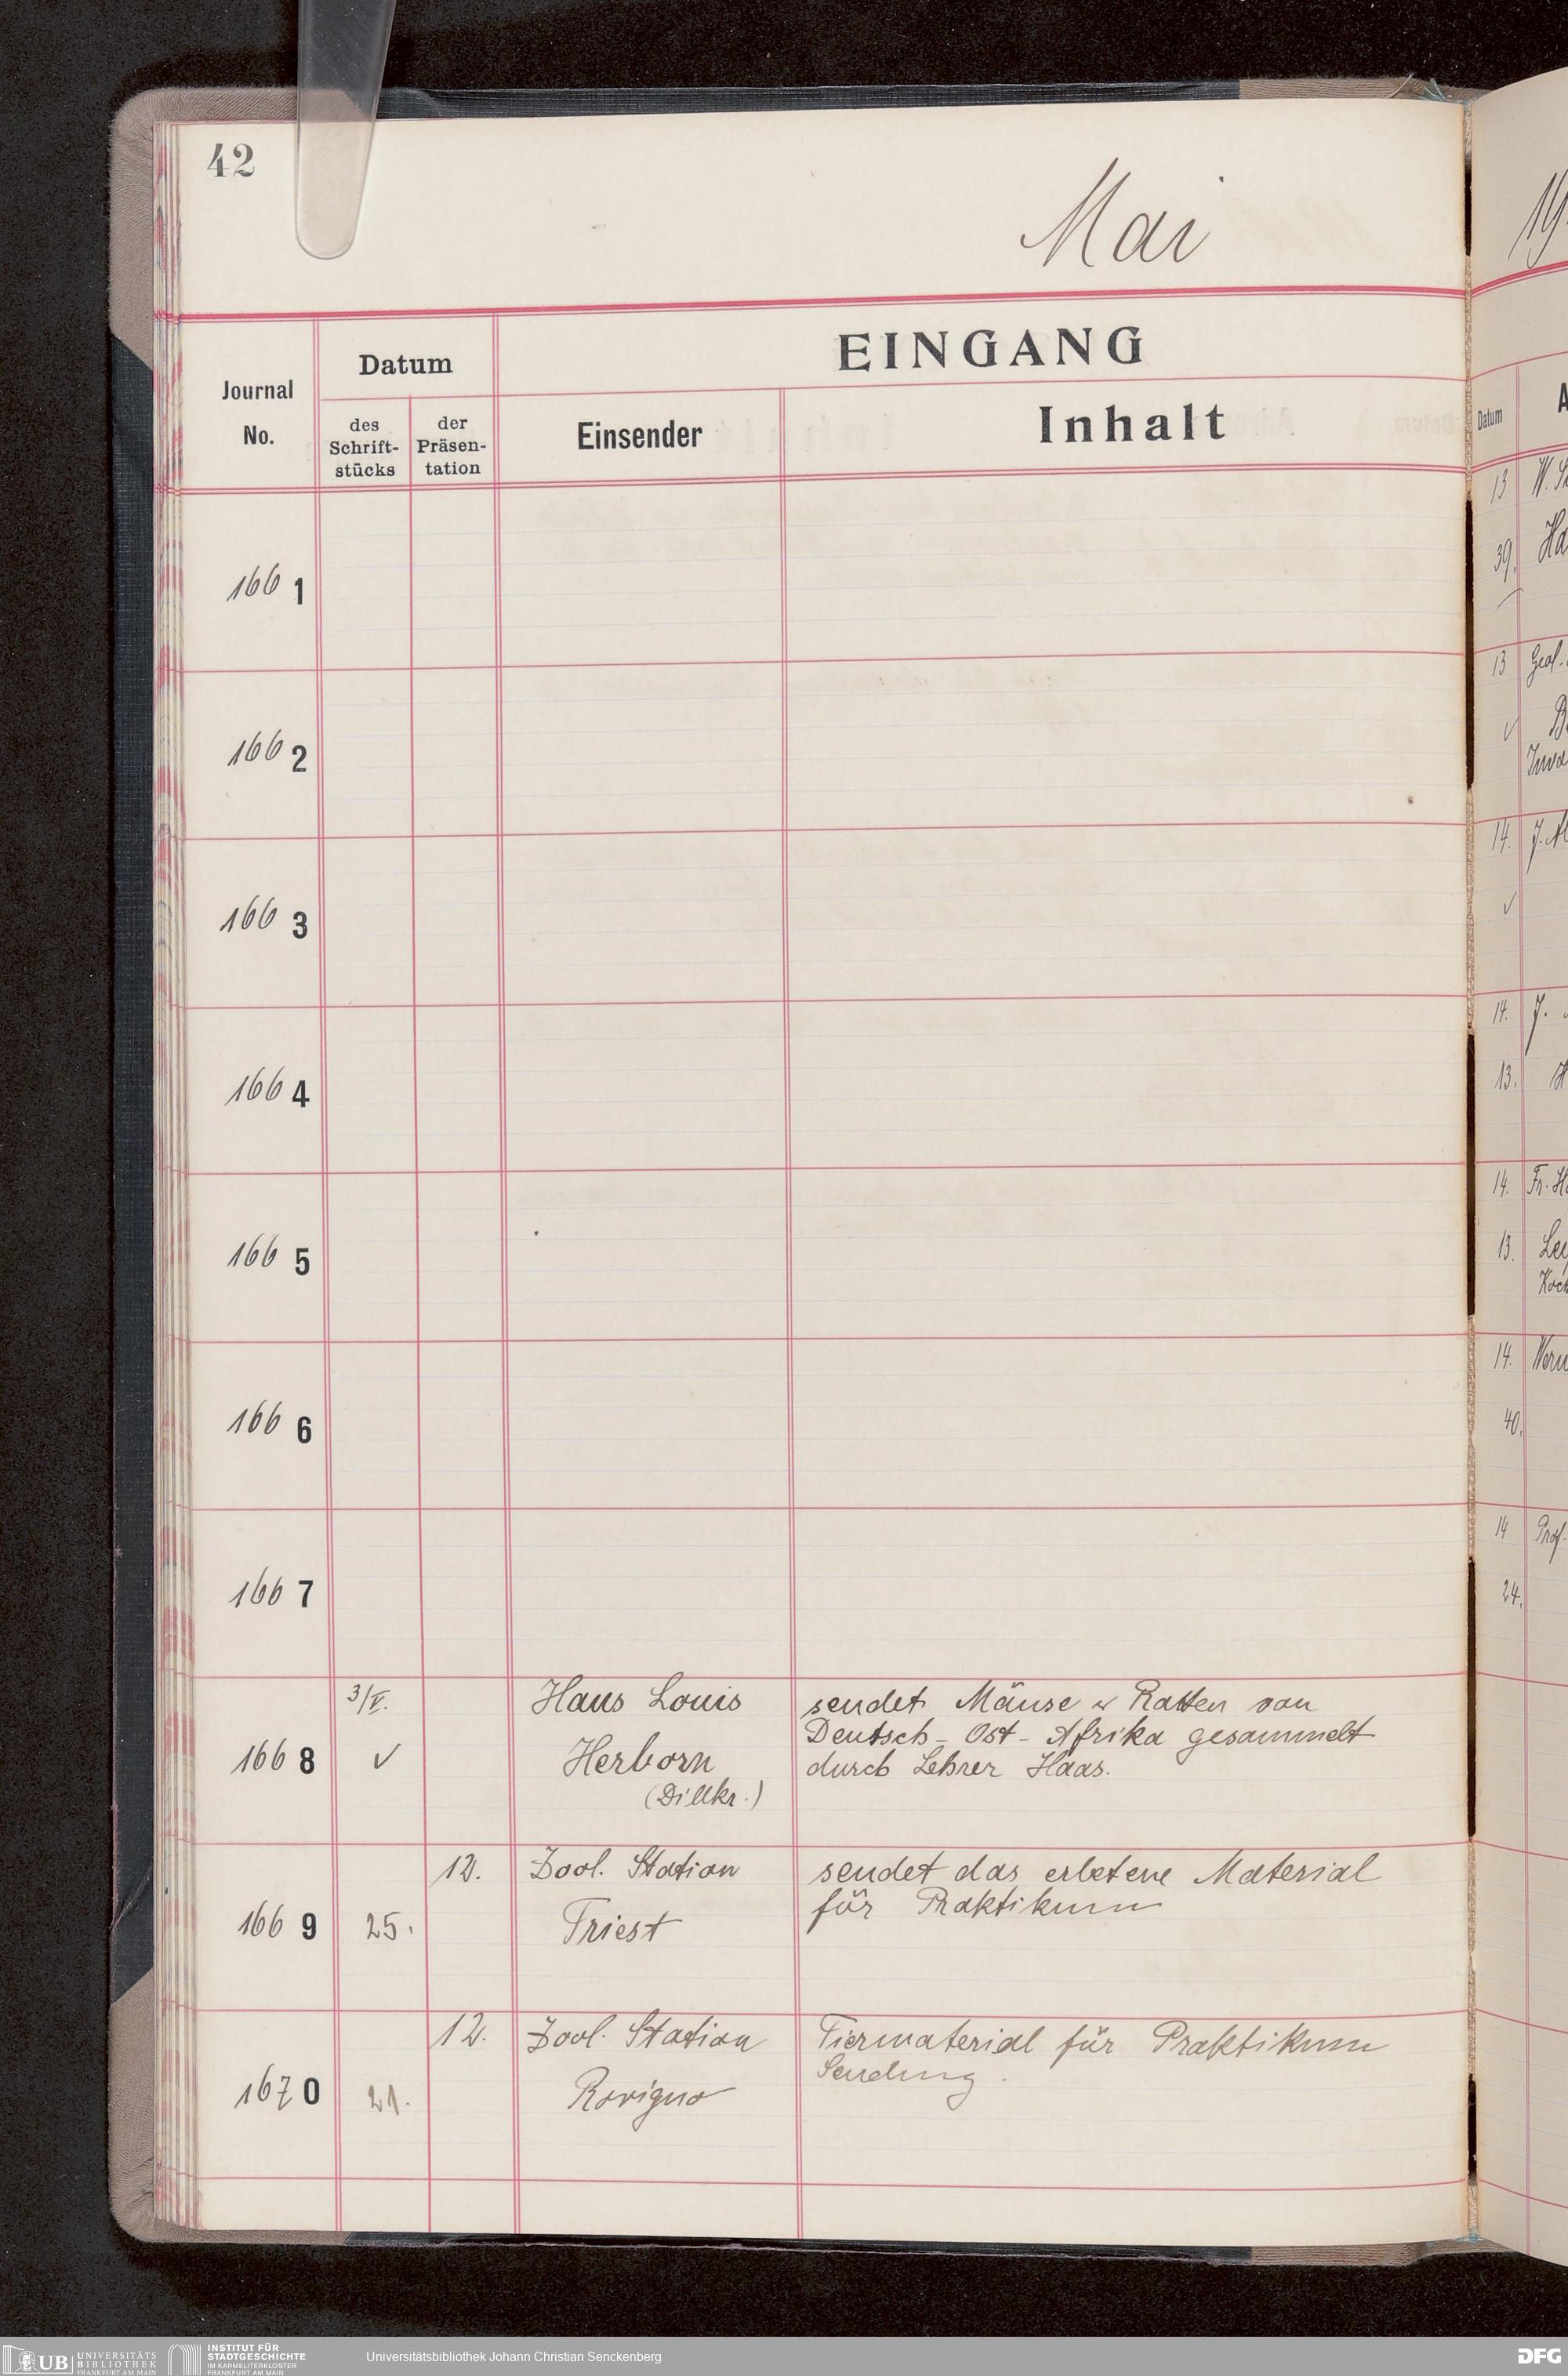 42
Mai
EINGANG
Journal
No.
Datum
des
Schrift-
stücks
der
Präsen-
tation
Einsender
Inhalt
1661
1662
1663
1664
1665
1666
1667
1668
3/V.
✓
Hans Louis
Herborn
(Dillkr.)
sendet Mäuse u Ratten von
Deutsch-Ost-Afrika gesammelt
durch Lehrer Haas.
1669
25.
12.
Zool. Station
Triest
sendet das erbetene Material
für Praktikum
1670
21.
12.
Zool. Station
Rovigno
Tiermaterial für Praktikum
Sendung.
19
Datum
A
13 W.
39.
13 Geol.
✓
14.
✓
14. J.
13.
14. Fr.
13.
14.
40.
14 Prof.
24.
UB UNIVERSITÄTS
BIBLIOTHEK
FRANKFURT AM MAIN
INSTITUT FÜR
STADTGESCHICHTE
IM KARMELITERKLOSTER
FRANKFURT AM MAIN
Universitätsbibliothek Johann Christian Senckenberg
DFG